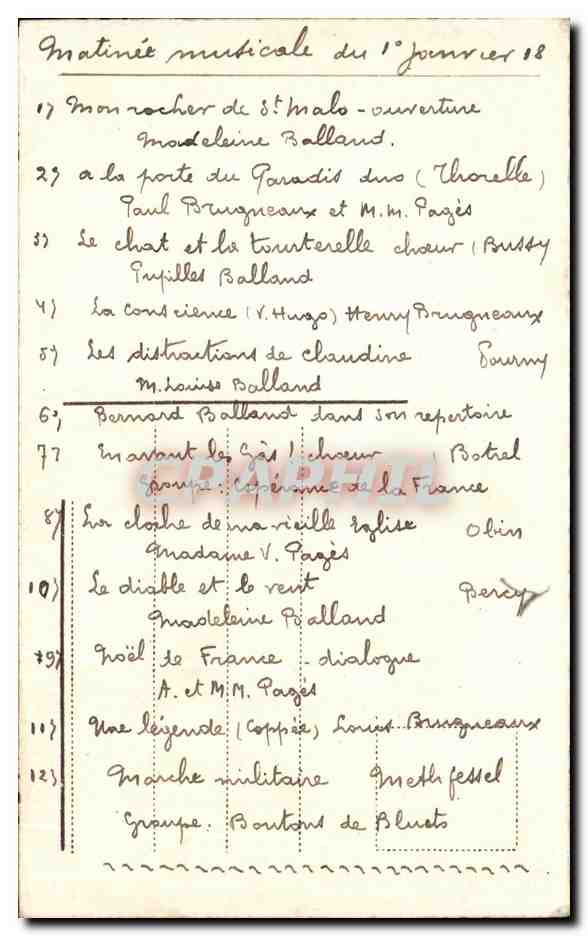 Matinée musicale du 1° Janvier 18
1) Mon rocher de St Malo - ouverture
Madeleine Balland.
2) a la porte du Paradis duo (Thorelle)
Paul Brugneaux et M.M. Pagès
3) Le chat et la tourterelle chœur (Bussy
Pupilles Balland
4) La conscience (V. Hugo) Henry Brugneaux
5) Les distractions de claudine Fourny
M. Louise Balland
6°) Bernard Balland dans son repertoire
7) En avant les Gâs! chœur (Botrel
Groupe: Espérance de la France
8) La cloche de ma vieille Eglise Obin
Madame V. Pagès
10) Le diable et le vent Bercy
Madeleine Balland
9) Noël de France - dialogue
A. et M.M. Pagès
11) Une légende (Coppée) Louis Brugneaux
12) Marche militaire Methfessel
Groupe: Boutons de Bluets